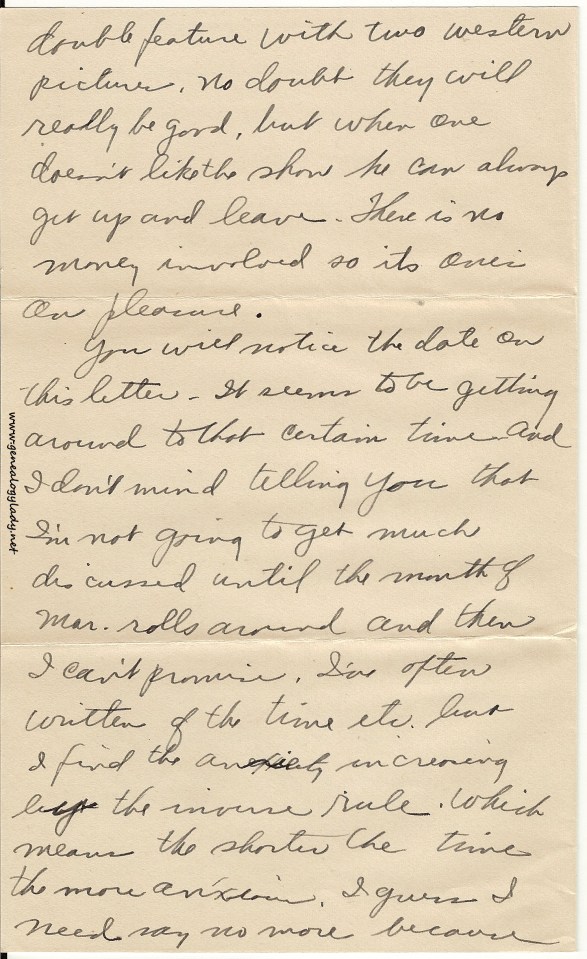 double feature with two western
pictures. No doubt they will
really be good, but when one
doesn't like the show he can always
get up and leave. There is no
money involved so its ones
own pleasure.
You will notice the date on
this letter - It seems to be getting
around to that certain time and
I don't mind telling you that
I'm not going to get much
discussed until the month of
Mar. rolls around and then
I can't promise. I've often
written of the time etc. but
I find the anxiety increasing
by the inverse rule. Which
means the shorter the time
the more anxious. I guess I
need say no more because
www.genealogylady.net